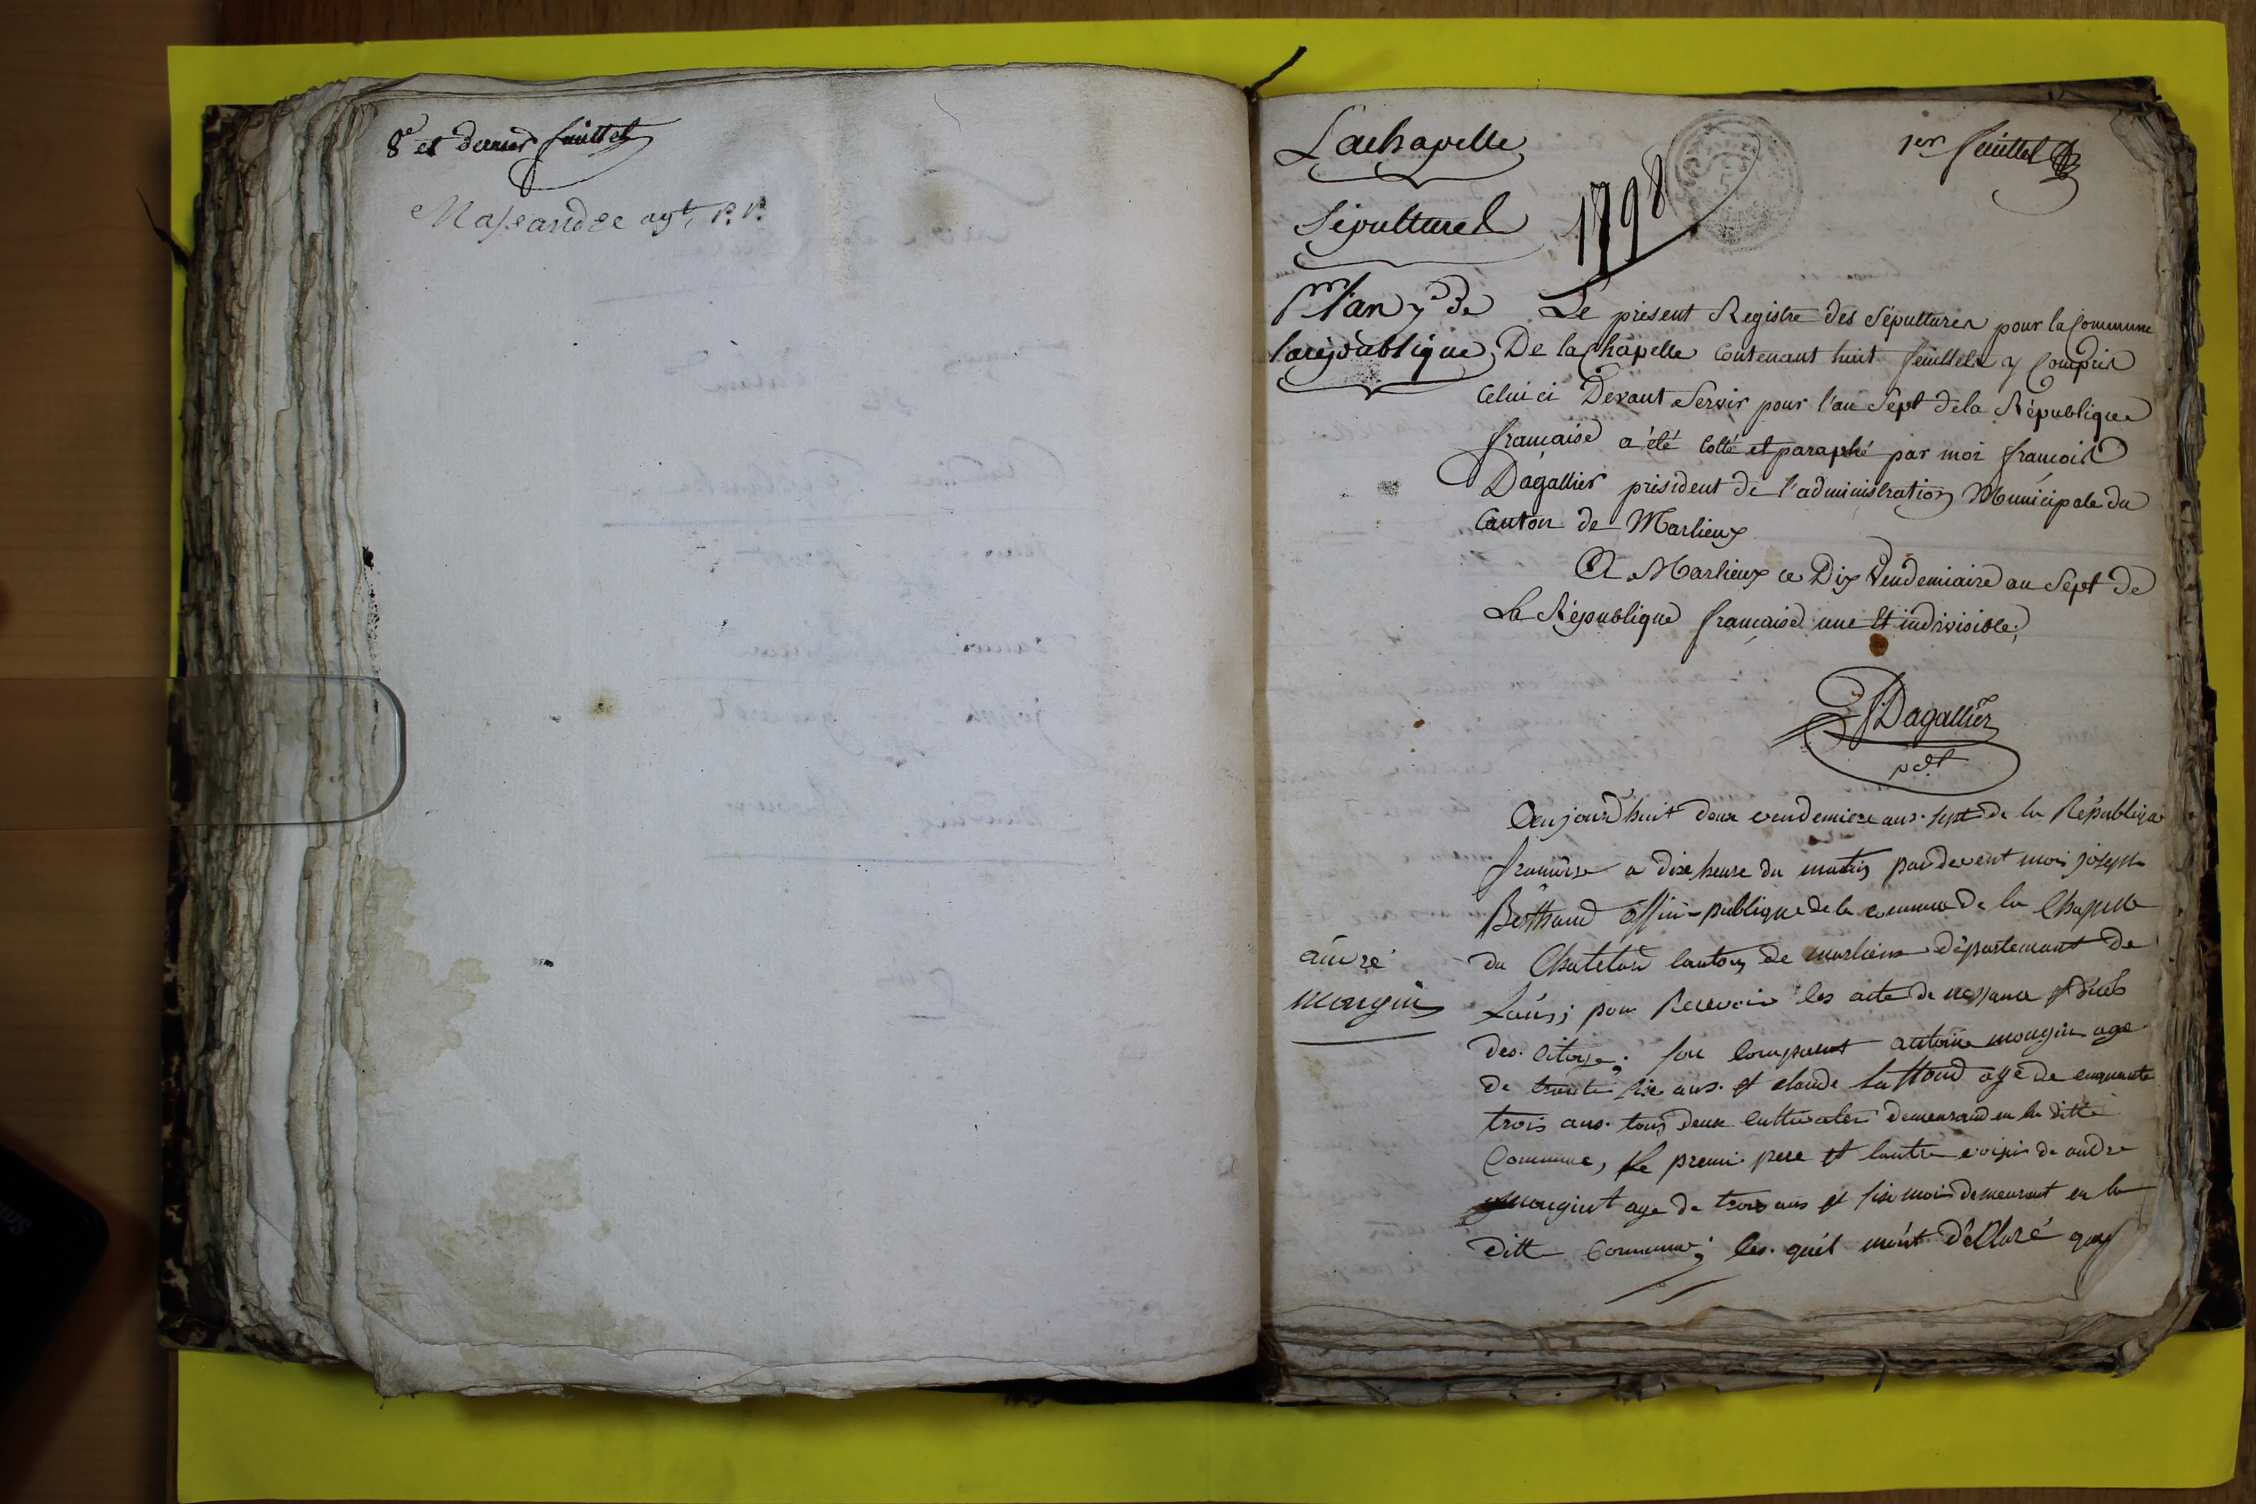 8e et dernier feuillet
Massandre agt P. P.
Lachapelle
1er feuillet
Sépultures
1798
Pr l'an 7e de
la république
Le présent Registre des Sépultures pour la Commune
De la Chapelle Contenant huit feuillets y Compris
Celui ci Devant Servir pour l'an Sept de la République
française a été Cotté et paraphé par moi françois
Dagallier président de l'administration Municipale du
Canton de Marlieux
A Marlieux ce Dix Vendemiaire an Sept de
La République française une Et indivisible;
Dagallier
pdt
Aujourd'huit deux vendemiere ans sept de la République
a dix heure du matin par devent moi joseph
Berthaud offici-publique de la commune de la Chapelle
du Chatelard Canton de marlieux départemant de
andré
mongin
Lain; pour Recevoir les acte de nessance et décès
des Citoye; son Comparut antoine mongin age
de trente six ans et claude age de cinquante
trois ans tous deux Cultivater demeurand en la ditte
Commune, le premi pere et lautre voisin de andre
mongint age de trois ans et six mois demeurant en la
ditte Commune; les quél mónt déClaré que